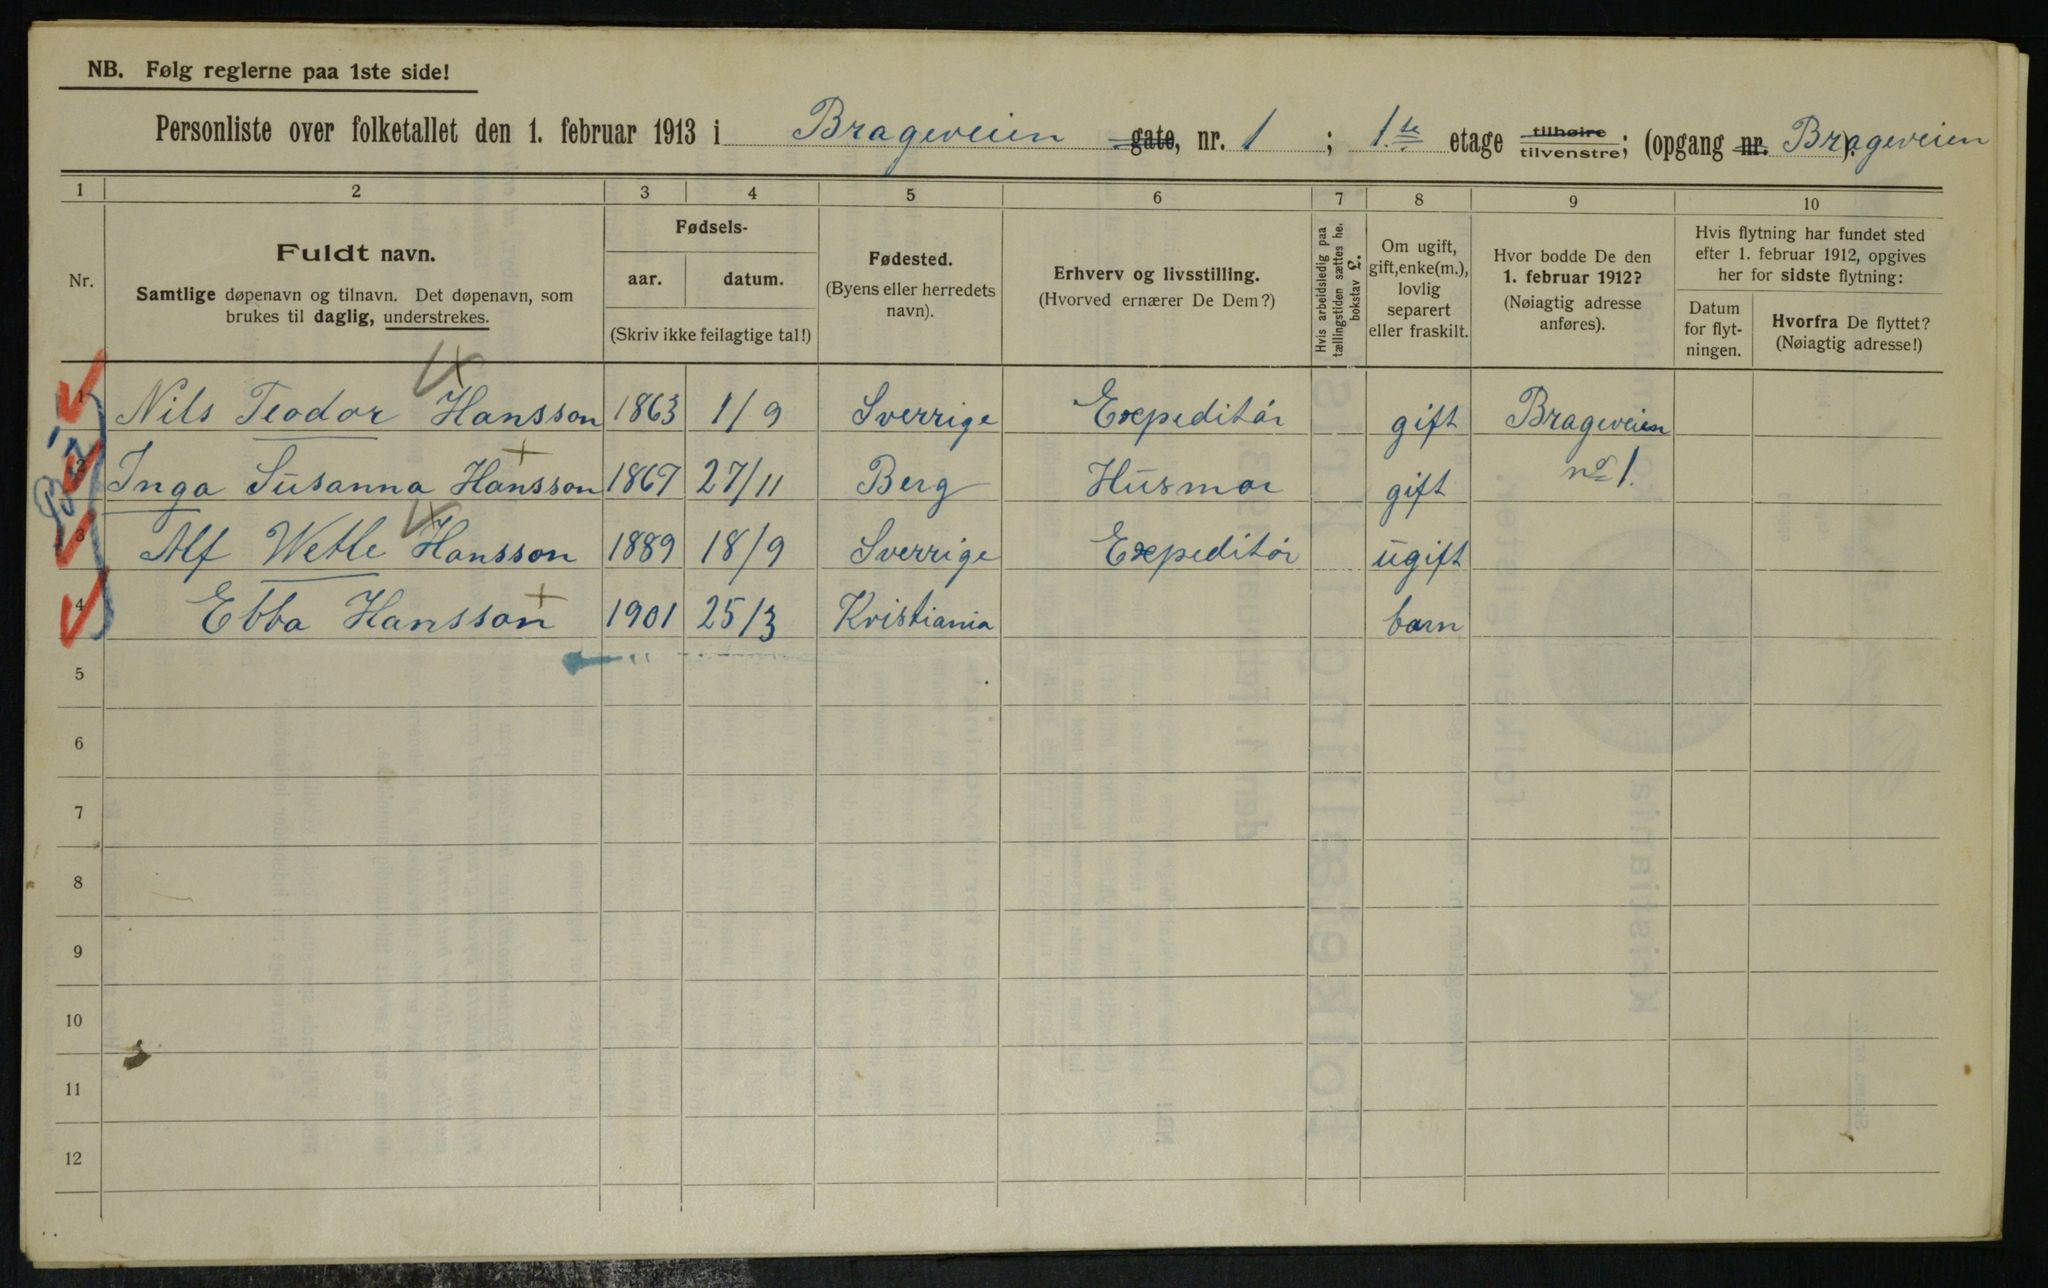 NB. Følg reglerne paa 1ste side!
Personliste over folketallet den 1. februar 1913 i Brageveien gate, nr. 1 ; 1.ste etage tilhøire tilvenstre; (opgang nr. Brageveien).
1 2 3 4 5 6 7 8 9 10
Nr.
Fuldt navn.
Samtlige døpenavn og tilnavn. Det døpenavn, som
brukes til daglig, understrekes.
Fødsels-
aar. datum.
(Skriv ikke feilagtige tal!)
Fødested.
(Byens eller herredets
navn).
Erhverv og livsstilling.
(Hvorved ernærer De Dem?)
Hvis arbeidsledig paa
tællingstiden sættes he.
bokstav £.
Om ugift,
gift, enke(m.),
lovlig
separert
eller fraskilt.
Hvor bodde De den
1. februar 1912?
(Nøiagtig adresse
anføres).
Hvis flytning har fundet sted
efter 1. februar 1912, opgives
her for sidste flytning:
Datum
for flyt-
ningen.
Hvorfra De flyttet?
(Nøiagtig adresse!)
1 Nils Teodor Hansson 1863 1/9 Sverrige Expeditór gift Brageveien
2 Inga Susanna Hansson 1867 27/11 Berg Husmor gift no 1.
3 Alf Wetle Hansson 1889 18/9 Sverrige Expeditór ugift
4 Ebba Hansson 1901 25/3 Kristiania barn
5
6
7
8
9
10
11
12